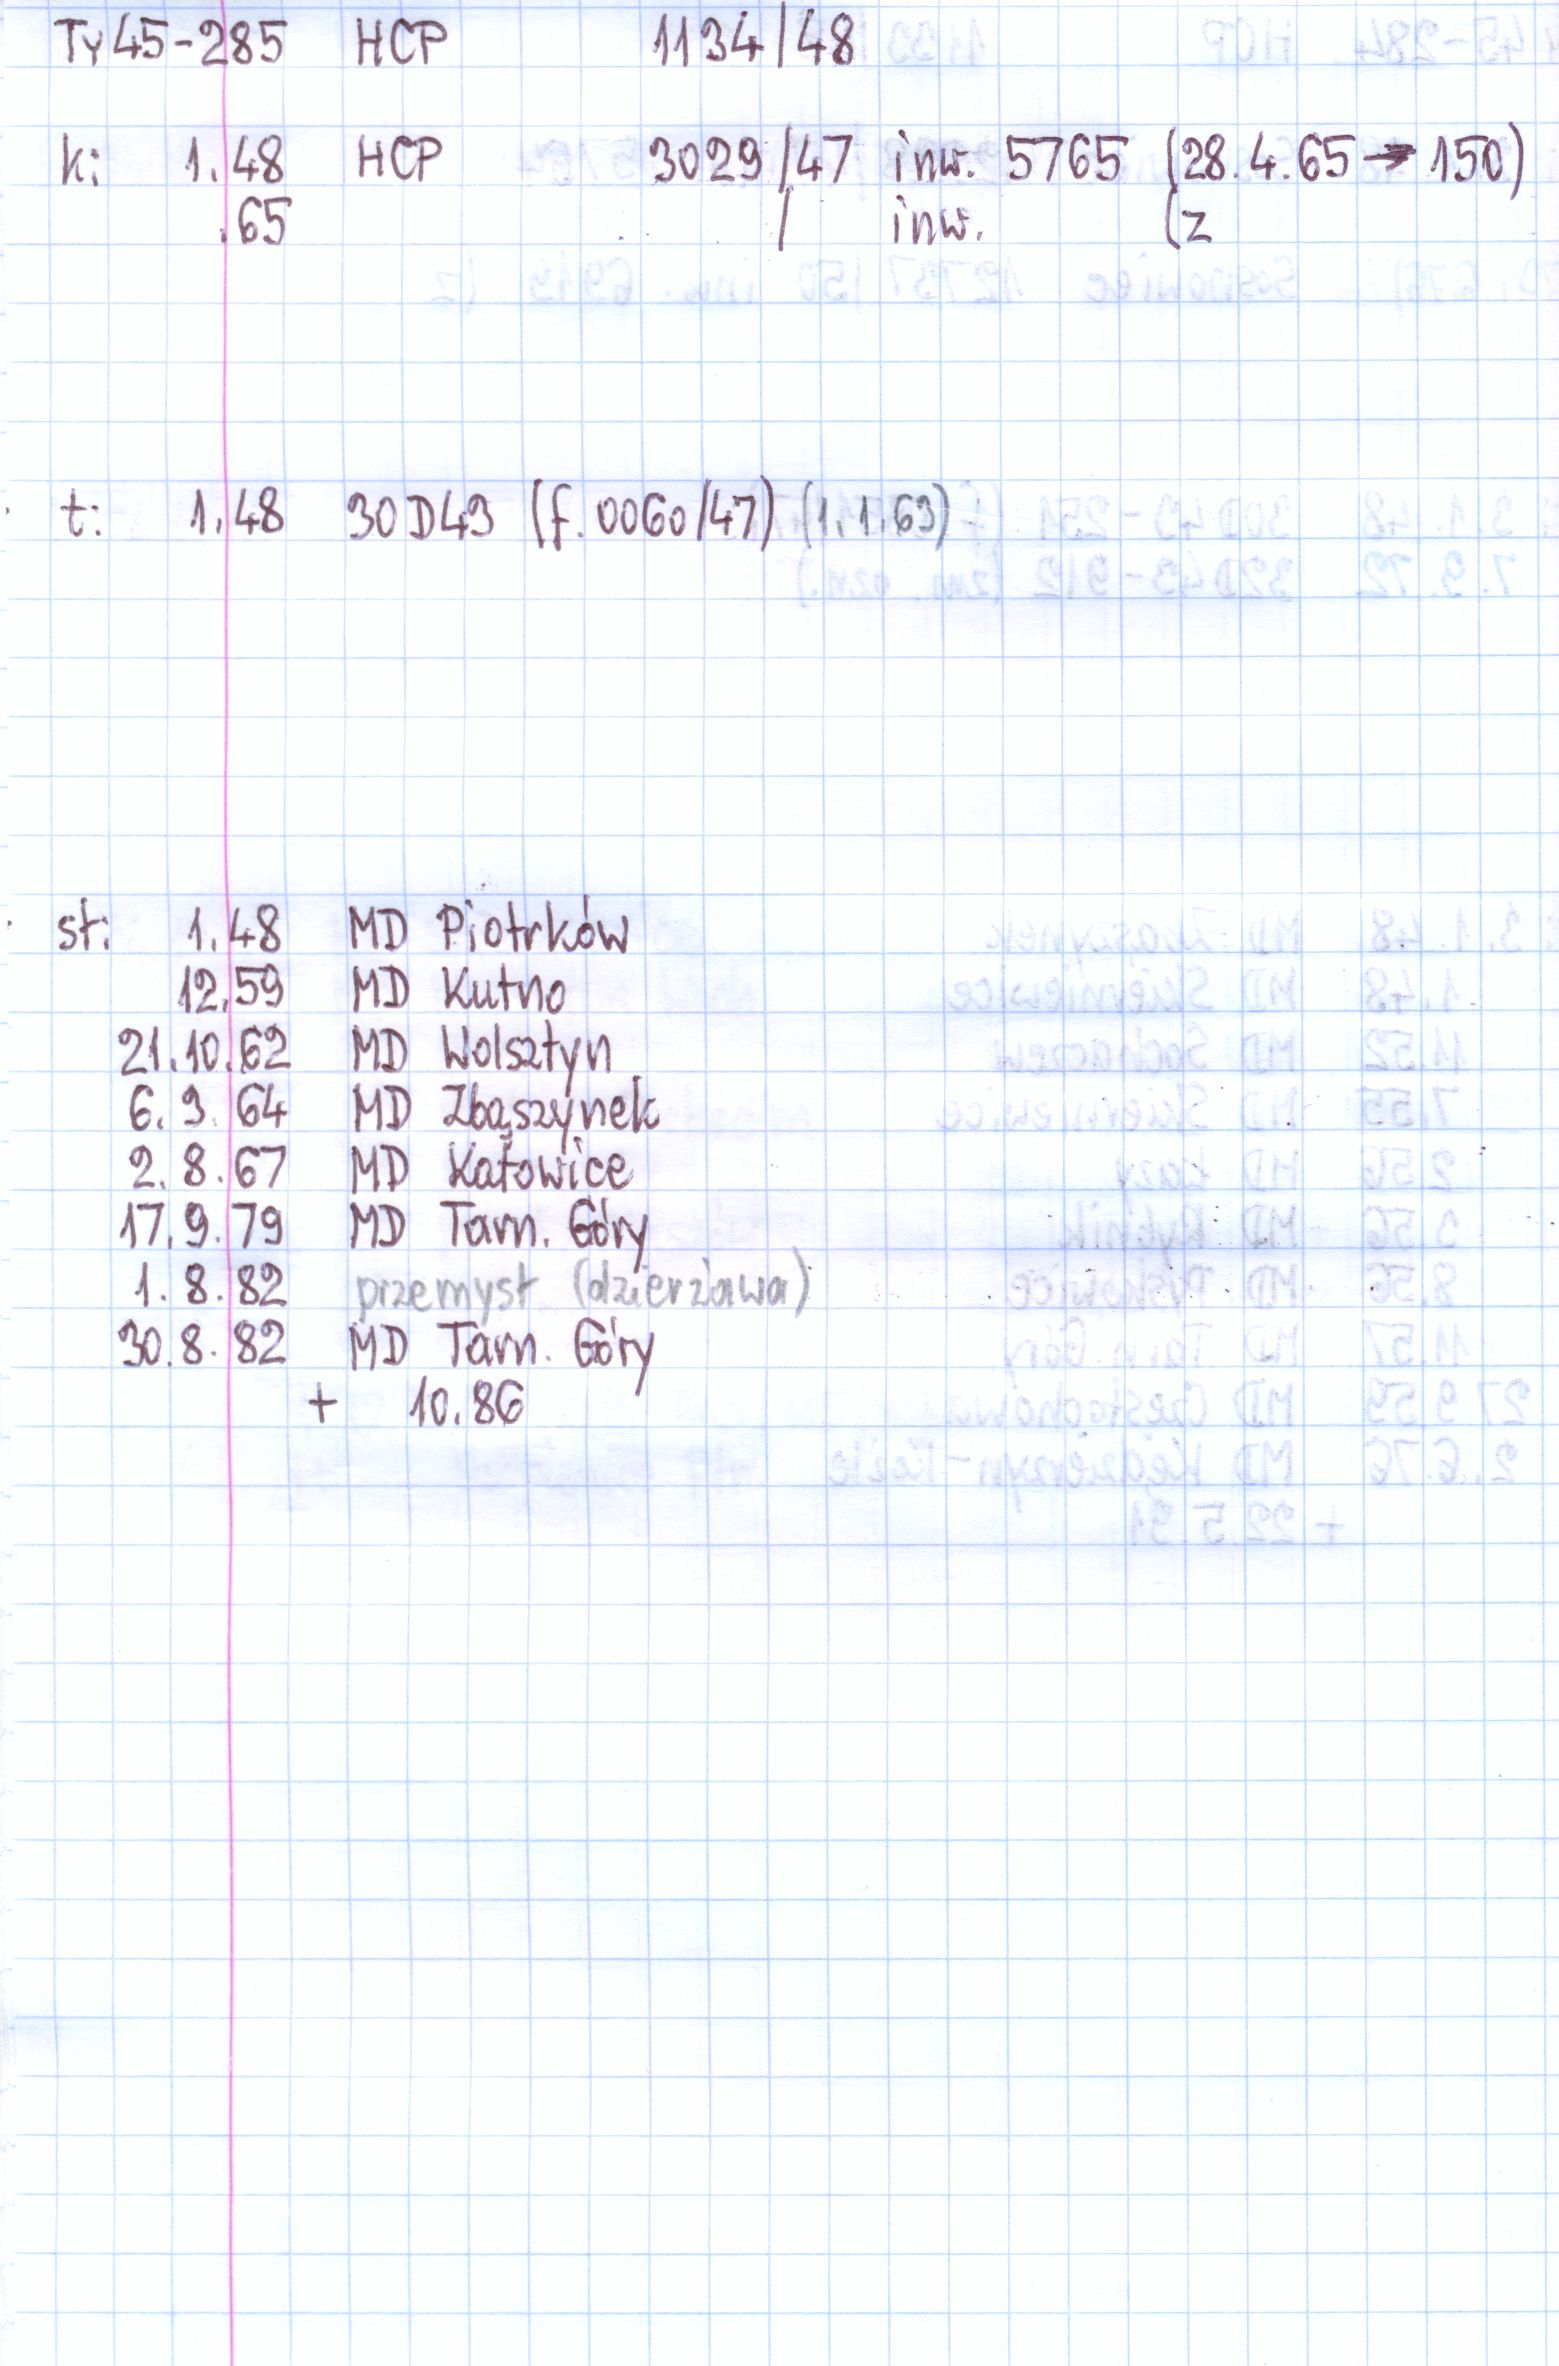 Ty45-285 HCP 1134/48
k: 1.48 HCP 3029/47 inw. 5765 (28.4.65 → 150)
.65 / inw. (z
t: 1.48 30D43 (f. 0060/47) (1.1.63)
st: 1.48 MD Piotrków
12.59 MD Kutno
21.10.62 MD Wolsztyn
6.9.64 MD Zbąszynek
2.8.67 MD Katowice
17.9.79 MD Tarn. Góry
1.8.82 przemysł (dzierżawa)
30.8.82 MD Tarn. Góry
+ 10.86